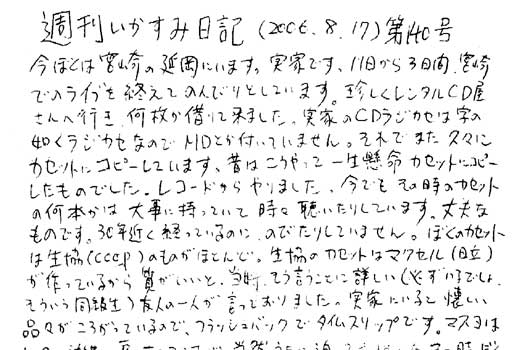 週刊いかすみ日記 (2006.8.17) 第140号
今ほどは宮崎の延岡にいます。実家です、11日から3日間、宮崎
でのライブを終えてのんびりとしています。珍しくレンタルCD屋
さんへ行き、何枚か借りて来ました。実家のCDラジカセは字の
如くラジカセなのでMDとか付いていません。それでまた久々に
カセットにコピーしています、昔はこうやって一生懸命カセットにコピー
したものでした。レコードからやりました、今でもその時のカセット
の何本かは大事に持っていて時々聴いたりしています。丈夫な
ものです。30年近く経っているのに、のびたりしていません。ぼくのカセット
は生協(coop)のものがほとんどで。生協のカセットはマクセル(日立)
が作っているから質がいいと、当時、そう言うことに詳しい(必ずいるでしょ
そういう同級生)友人の一人が言っておりました。実家にいると懐しい
品々がころがっているので、フラッシュバックでタイムスリップです。マスヨは